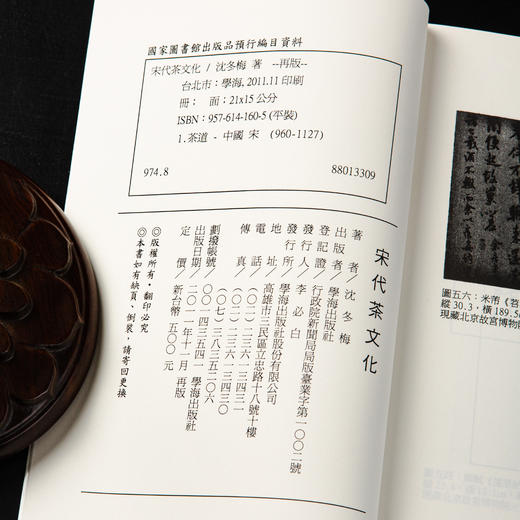 國家圖書館出版品預行編目資料
宋代茶文化 / 沈冬梅 著 --再版--
台北市：學海, 2011.11 印刷
冊： 面：21x15 公分
ISBN：957-614-160-5 (平裝)
1.茶道 - 中國 宋 (960-1127)
974.8 88013309
宋代茶文化
著者／沈冬梅
出版者／學海出版社
登記證／行政院新聞局局版臺業字第一〇〇二號
發行人／李必白
發行所／學海出版社股份有限公司
地址／高雄市三民區立忠路十八號十樓
電話／（〇二）二三六一三四三一
（〇二）二三六一三四三〇
傳真／（〇七）三八三五二〇六
劃撥帳號／〇〇一四三五四一 學海出版社
出版日期／二〇一一年十一月 再版
定價／新台幣 五〇〇元
◎版權所有‧翻印必究
◎本書如有缺頁、倒裝，請寄回更換
圖五六：米芾《苕
縱30.3，橫189.5
現藏北京故宮博物